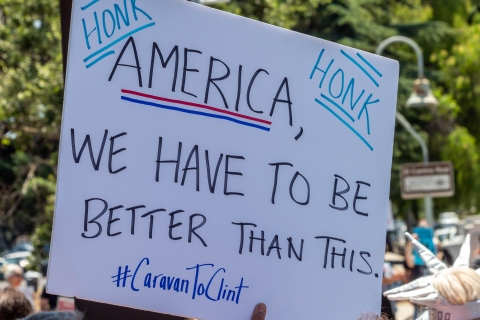 HONK
HONK
AMERICA,
WE HAVE TO BE
BETTER THAN THIS.
#CaravanToClint